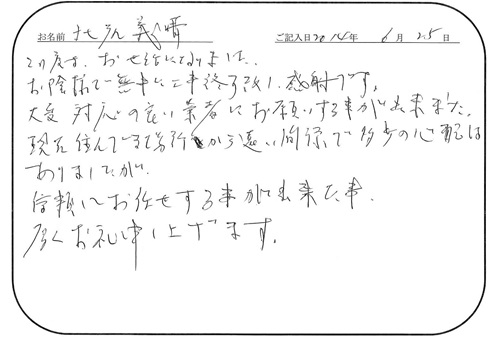 お名前 北宗 義晴 ご記入日 2014年 6月 25日
この度は、お世話になりました。
お陰様で無事に工事終了致し、感謝です。
大変対応の良い業者にお願いする事が出来ました。
現在住んでいる場所から遠い関係で多少の心配は
ありましたが、
信頼してお任せする事が出来た事、
厚くお礼申し上げます。